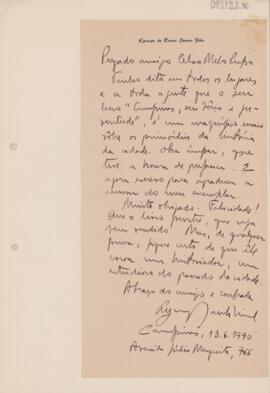 Prezado amigo Celso Mello Pupo
Tenho dito em todos os lugares
e a toda a gente que o seu
livro "Campinas, seu berço e ju-
ventude", é um magnífico ensaio
sôbre os primórdios da história
da cidade. Obra ímpar, que
tive a honra de prefaciar. E
agora escrevo para agradecer a
do meu exemplar.
Muito obrigado. Felicidades!
Que o livro que seja
bem vendido. Mas, de qualquer
forma, fique certo de que êle
um historiador, um
estudioso do passado da cidade.
Abraço do amigo e confrade
Campinas, 13.6.1970
Avenida Júlio Mesquita, 766